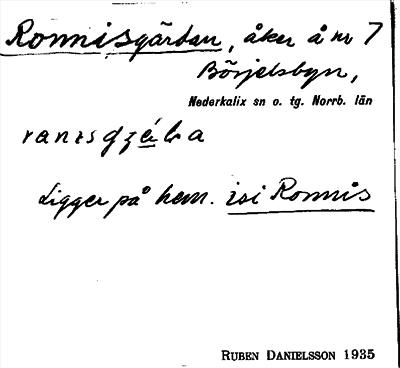 Ronnisgärdan, åker å nr 7
Börjelsbyn,
Nederkalix sn o. tg. Norrb. län
Ligger på hem. isi Ronnis
RUBEN DANIELSSON 1935